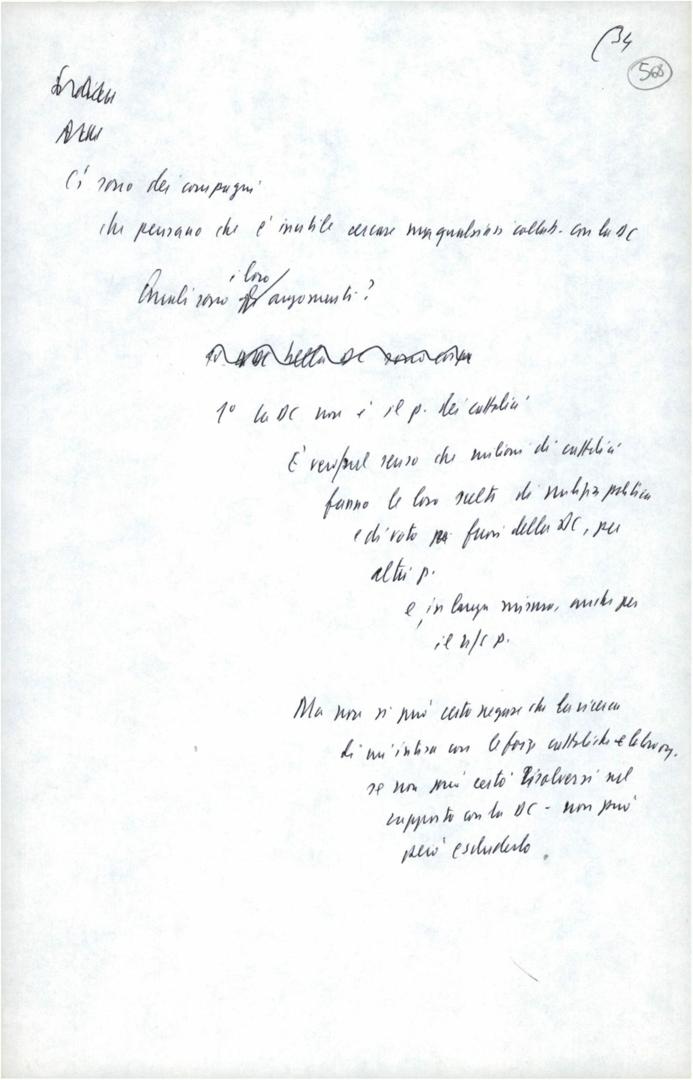 (34
568
Ci sono dei compagni
che pensano che è inutile cercare una qualsiasi collab. con la DC
Quali sono i loro argomenti?
1° La DC non è il p. dei cattolici
È vero, nel senso che milioni di cattolici
fanno le loro scelte di politica
e di voto fuori della DC, per
altri p.
e, in larga misura, anche per
il n/ p.
Ma non si può certo negare che la ricerca
di un'intesa con le forze cattoliche e le loro org.
se non può certo risolversi nel
rapporto con la DC - non può
però escluderlo.